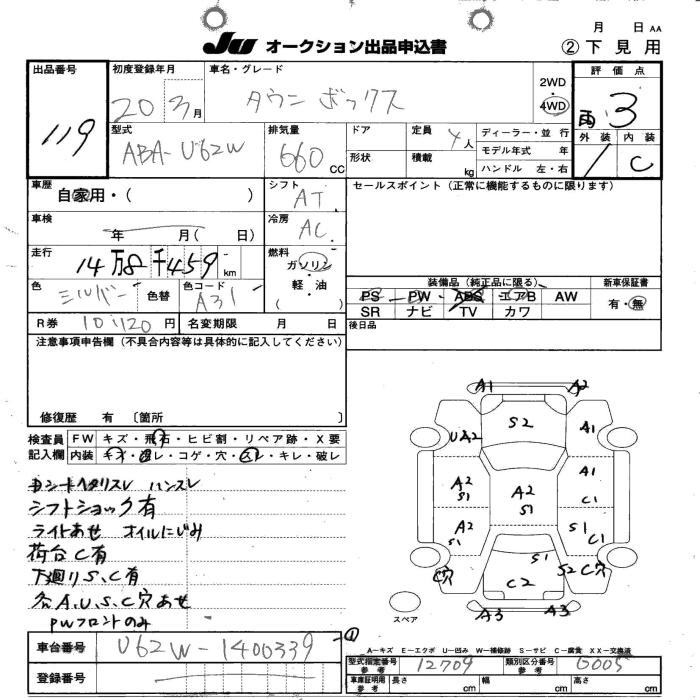 JU オークション出品申込書
月 日 AA
② 下見用
出品番号 119
初度登録年月 20 3月
車名・グレード タウンボックス
2WD 4WD
評価点 雨 3
型式 ABA-U62W
排気量 660 CC
ドア
形状
定員 4人
積載 kg
ディーラー・並行
モデル年式 年
ハンドル 左・右
外装 内装 C
車歴 自家用・( )
シフト AT
セールスポイント (正常に機能するものに限ります)
車検 年 月( 日)
冷房 AC
走行 14万8千459 km
燃料 ガソリン・軽・油 ( )
色 シルバー 色替
色コード A31
装備品 (純正品に限る)
PS PW ABS エアB AW
SR ナビ TV カワ
新車保証書 有・無
R券 10120円
名変期限 月 日
後日品
注意事項申告欄 (不具合内容等は具体的に記入してください)
修復歴 有 〔箇所 〕
検査員記入欄
FW キズ・飛石・ヒビ割・リペア跡・X要
内装 キズ・ヨゴレ・コゲ・穴・スレ・キレ・破レ
シフトショック有
ライトあせ オイルにじみ
荷台C有
下廻りS、C有
各A.U.S.C穴あせ
PWフロントのみ
A1 A2
S2
UA2 A1
A2 S1 A2 S1 A1 C1
A2 S1 S1 C1
C穴 S1 S2 C穴
C2
A3 A3
スペア
A-キズ E-エクボ U-凹み W-補修跡 S-サビ C-腐食 XX-交換済
車台番号 U62W-1400339
登録番号
型式指定番号 参考 12709
類別区分番号 参考 0005
車庫証明用 参考 長さ cm 幅 cm 高さ cm